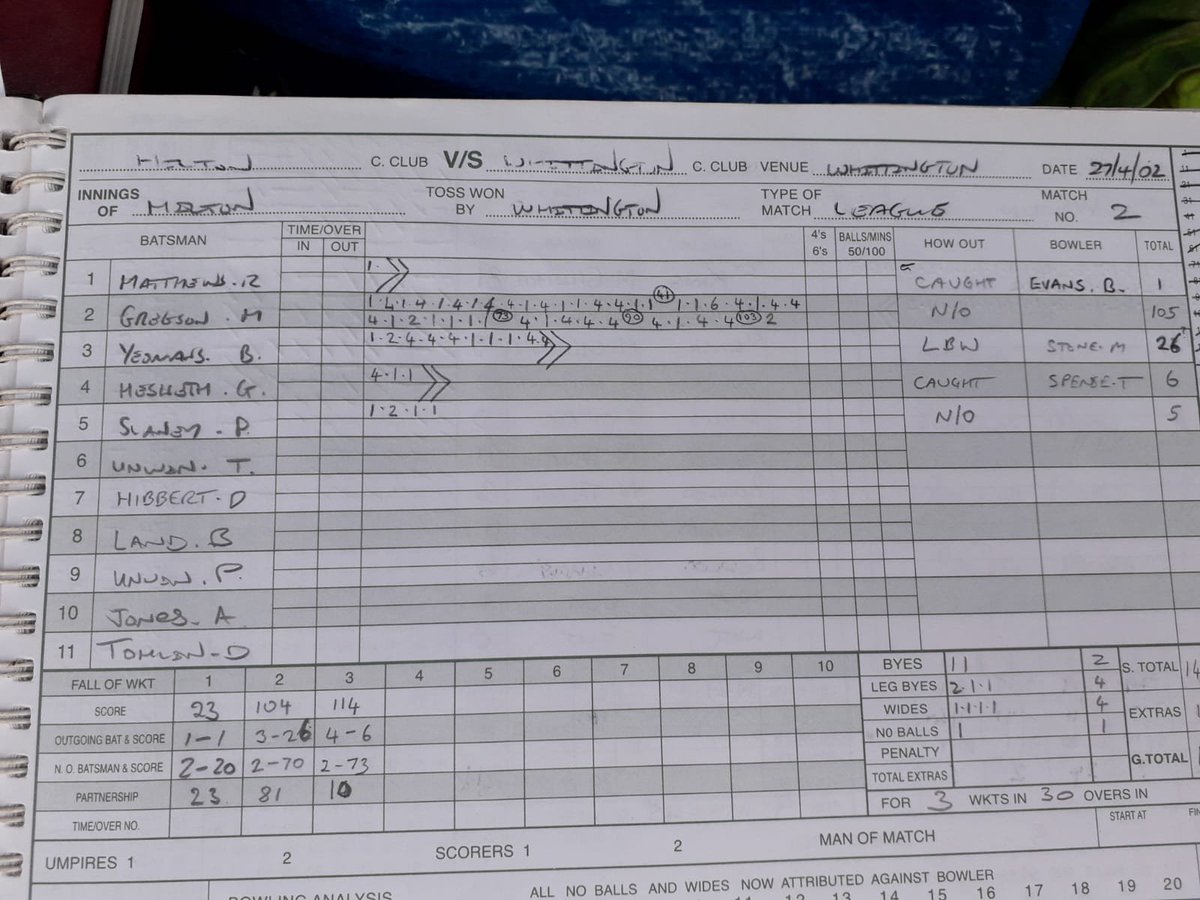 MILTON C. CLUB V/S WHITTINGTON C. CLUB VENUE WHITTINGTON DATE 27/4/02
INNINGS OF MILTON TOSS WON BY WHITTINGTON TYPE OF MATCH LEAGUE MATCH NO. 2
BATSMAN TIME/OVER IN OUT 4's 6's BALLS/MINS 50/100 HOW OUT BOWLER TOTAL
1 MATTHEWS. R 1. CAUGHT EVANS. B. 1
2 GREGSON. M 1.4.1.4.1.4.1.4.4.1.4.1.1.4.4.1.1 41 1.1.6.4.1.4.4 N/O 105
4.1.2.1.1.1.1 73 4.1.4.4.4 90 4.1.4.4 103 2
3 YEOMANS. B. 1.2.4.4.4.1.1.1.4.4 LBW STONE. M 26
4 HESKETH. G. 4.1.1 CAUGHT SPENSE. T 6
5 SLANEY. P. 1.2.1.1 N/O 5
6 UNWIN. T.
7 HIBBERT. D
8 LAND. B
9 UNWIN. P.
10 JONES. A
11 TOMLIN. D
FALL OF WKT 1 2 3 4 5 6 7 8 9 10
SCORE 23 104 114
OUTGOING BAT & SCORE 1-1 3-26 4-6
N. O. BATSMAN & SCORE 2-20 2-70 2-73
PARTNERSHIP 23 81 10
TIME/OVER NO.
BYES 11 2 S. TOTAL 14
LEG BYES 2.1.1 4
WIDES 1.1.1.1 4 EXTRAS
NO BALLS 1 1
PENALTY G.TOTAL
TOTAL EXTRAS
FOR 3 WKTS IN 30 OVERS IN
START AT
UMPIRES 1 2 SCORERS 1 2 MAN OF MATCH
BOWLING ANALYSIS ALL NO BALLS AND WIDES NOW ATTRIBUTED AGAINST BOWLER
11 12 13 14 15 16 17 18 19 20